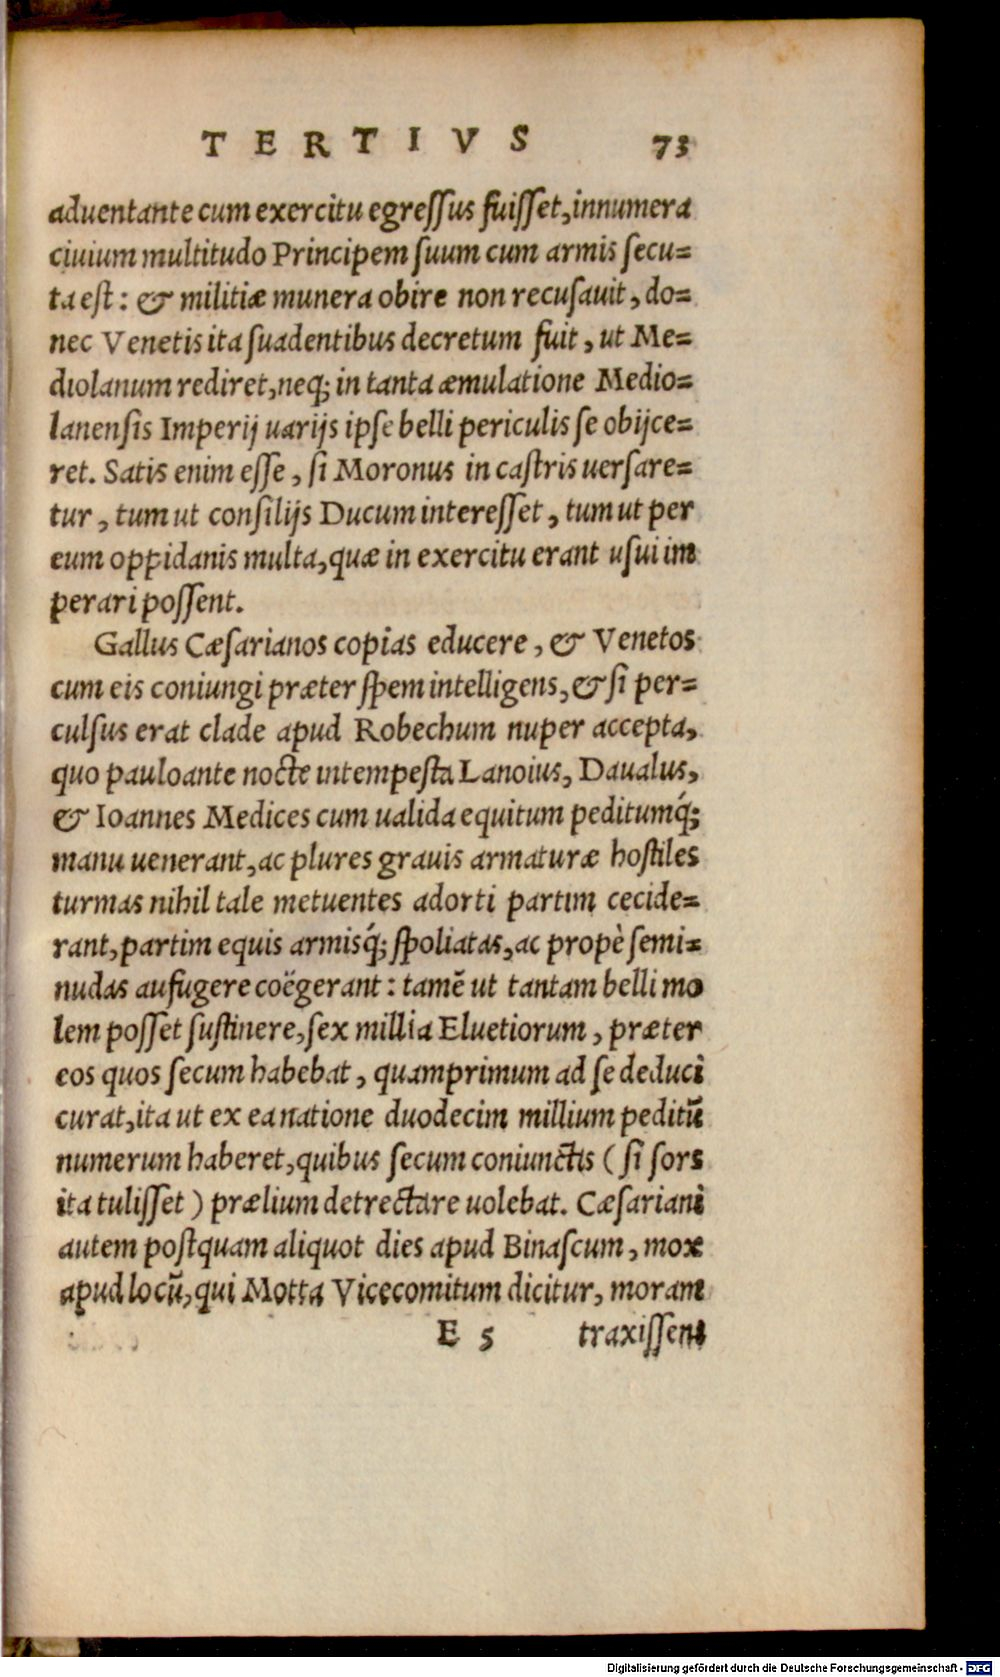 TERTIVS 73
aduentante cum exercitu egreſſus fuiſſet, innumera
ciuium multitudo Principem ſuum cum armis ſecu=
ta eſt: & militiæ munera obire non recuſauit, do=
nec Venetis ita ſuadentibus decretum fuit, ut Me=
diolanum rediret, neq; in tanta æmulatione Medio=
lanenſis Imperij uarijs ipſe belli periculis ſe obijce=
ret. Satis enim eſſe, ſi Moronus in caſtris uerſare=
tur, tum ut conſilijs Ducum intereſſet, tum ut per
eum oppidanis multa, quæ in exercitu erant uſui im
perari poſſent.
Gallus Cæſarianos copias educere, & Venetos
cum eis coniungi præter ſpem intelligens, & ſi per=
culſus erat clade apud Robechum nuper accepta,
quo pauloante nocte intempeſta Lanoius, Daualus,
& Ioannes Medices cum ualida equitum peditumq́;
manu uenerant, ac plures grauis armaturæ hoſtiles
turmas nihil tale metuentes adorti partim cecide=
rant, partim equis armisq́; ſpoliatas, ac propè ſemi=
nudas aufugere coëgerant: tamẽ ut tantam belli mo
lem poſſet ſuſtinere, ſex millia Eluetiorum, præter
eos quos ſecum habebat, quamprimum ad ſe deduci
curat, ita ut ex ea natione duodecim millium peditũ
numerum haberet, quibus ſecum coniunctis (ſi ſors
ita tuliſſet) prælium detrectare uolebat. Cæſariani
autem poſtquam aliquot dies apud Binaſcum, mox
apud locũ, qui Motta Vicecomitum dicitur, moram
E 5 traxiſſent
Digitalisierung gefördert durch die Deutsche Forschungsgemeinschaft - DFG